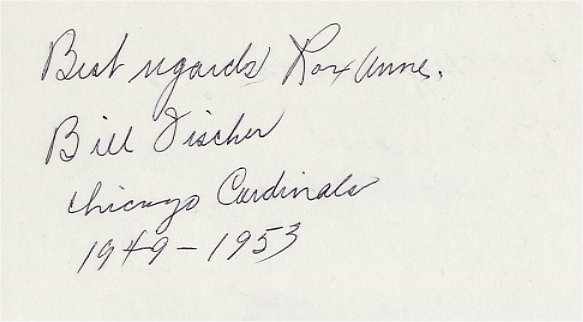 Best regards Roxanne.
Bill Fischer
Chicago Cardinals
1949-1953